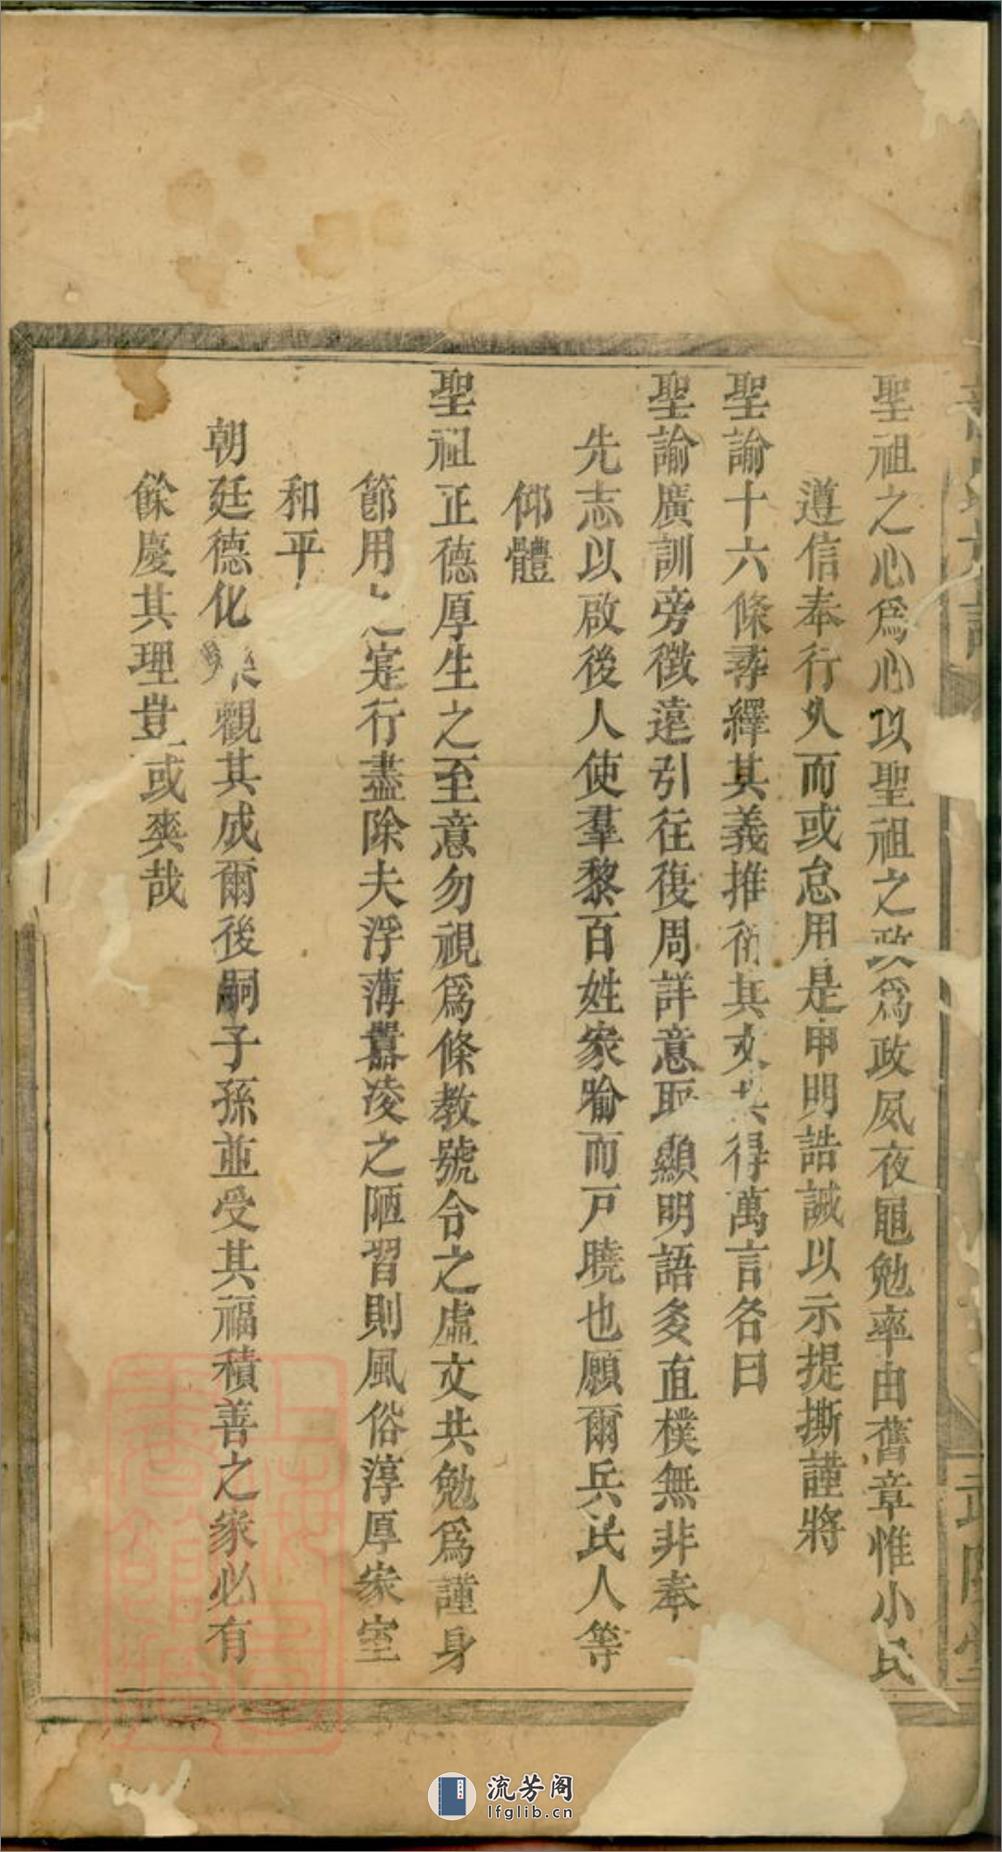 聖祖之心爲心以聖祖之政爲政夙夜黽勉率由舊章惟小民
遵信奉行久而或怠用是申明誥誡以示提撕謹將
聖諭十六條尋繹其義推衍其文共得萬言名曰
聖諭廣訓旁徵遠引往復周詳意取顯明語多直樸無非奉
先志以啟後人使羣黎百姓家喻而戸曉也願爾兵民人等
仰體
聖祖正德厚生之至意勿視爲條教號令之虛文共勉爲謹身
節用之寔行盡除夫浮薄囂凌之陋習則風俗淳厚家室
和平
朝廷德化樂觀其成爾後嗣子孫並受其福積善之家必有
餘慶其理豈或爽哉
上海圖書館藏
流芳阁
lfglib.cn